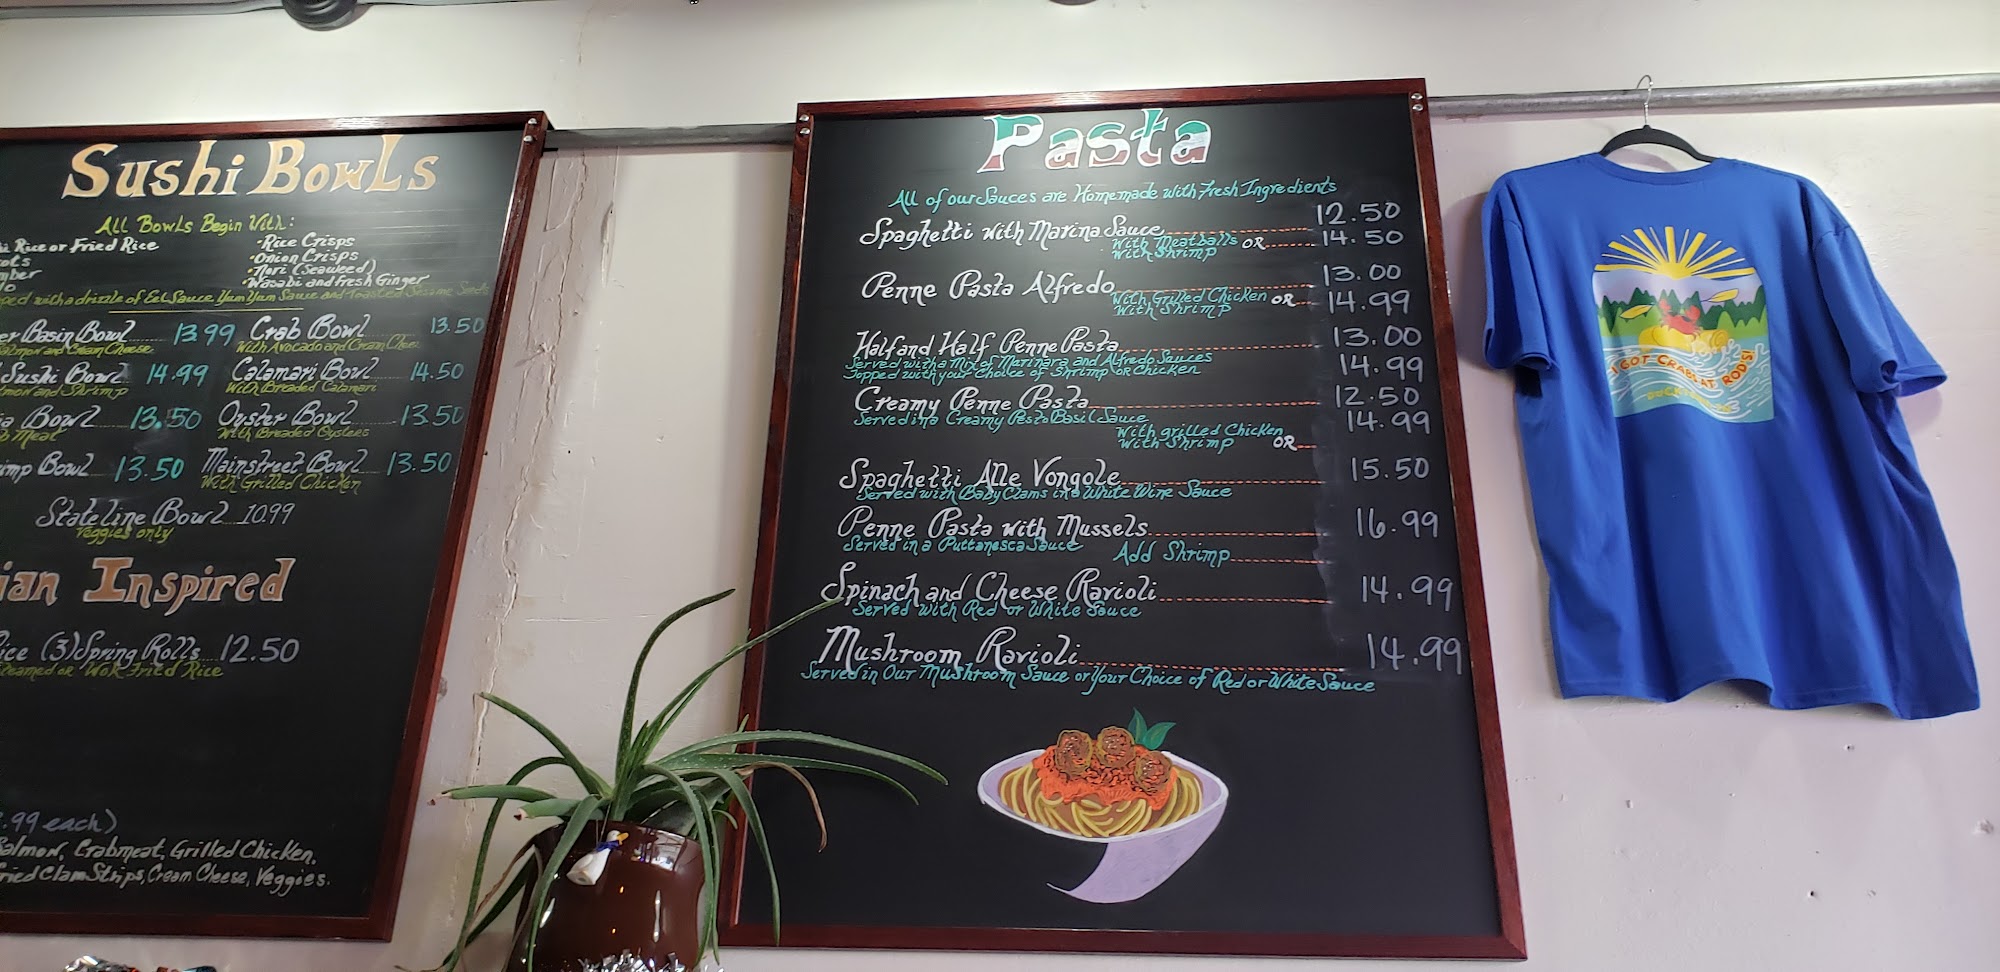 Sushi Bowls
All Bowls Begin With:
Rice or Fried Rice
•Rice Crisps
•Onion Crisps
•Nori (Seaweed)
•Wasabi and Fresh Ginger
with a drizzle of Eel Sauce, Yum Yum Sauce and Toasted Sesame Seeds
Basin Bowl 13.99
Salmon and Cream Cheese
Crab Bowl 13.50
With Avocado and Cream Cheese
Sushi Bowl 14.99
and Shrimp
Calamari Bowl 14.50
With Breaded Calamari
Bowl 13.50
Meat
Oyster Bowl 13.50
With Breaded Oysters
Bowl 13.50
Mainstreet Bowl 13.50
With Grilled Chicken
Stateline Bowl 10.99
Veggies only
ian Inspired
(3) Spring Rolls 12.50
or Wok Fried Rice
.99 each)
Salmon, Crabmeat, Grilled Chicken,
Fried Clam Strips, Cream Cheese, Veggies.
Pasta
All of our Sauces are Homemade with Fresh Ingredients
Spaghetti with Marina Sauce 12.50
With Meatballs OR 14.50
With Shrimp
Penne Pasta Alfredo 13.00
With Grilled Chicken OR 14.99
With Shrimp
Half and Half Penne Pasta 13.00
Served with a Mix of Marinara and Alfredo Sauces 14.99
Topped with your Choice of Shrimp OR Chicken
Creamy Penne Pasta 12.50
Served in a Creamy Pesto Basil Sauce 14.99
With grilled Chicken
With Shrimp OR
Spaghetti Alle Vongole 15.50
Served with Baby Clams in a White Wine Sauce
Penne Pasta with Mussels 16.99
Served in a Puttanesca Sauce Add Shrimp
Spinach and Cheese Ravioli 14.99
Served with Red or White Sauce
Mushroom Ravioli 14.99
Served in Our Mushroom Sauce or Your Choice of Red or White Sauce
I GOT CRABS AT RODS!